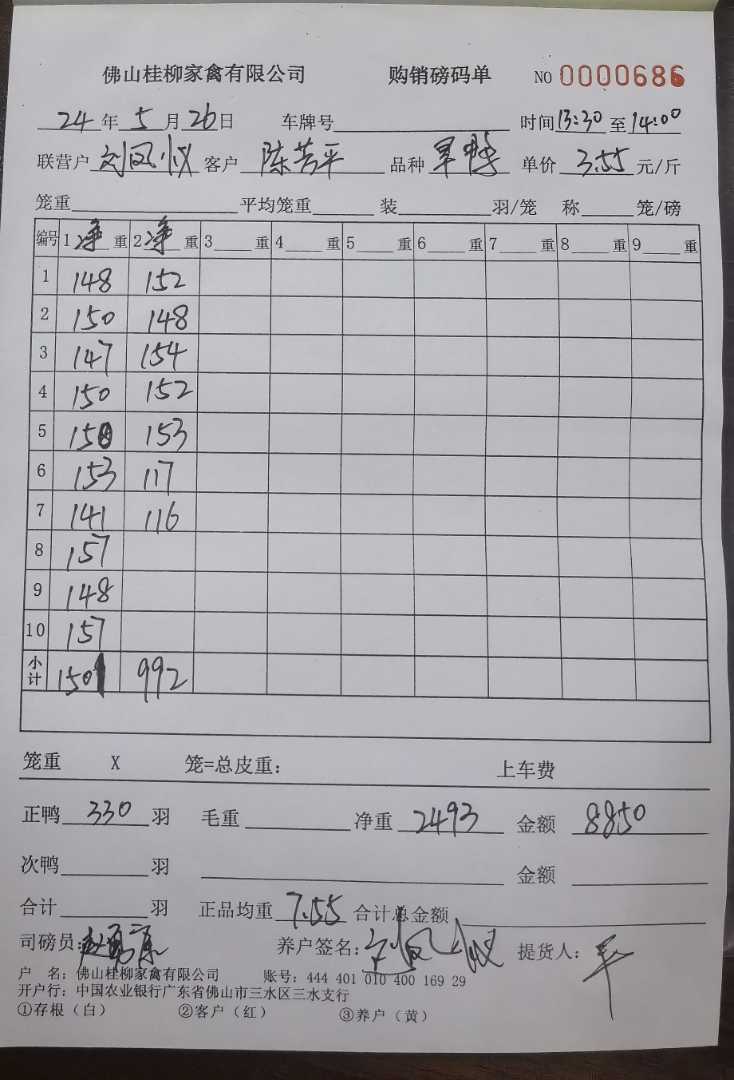 佛山桂柳家禽有限公司 购销磅码单 NO 0000686
24年5月26日 车牌号 时间13:30至14:00
联营户 刘凤仪 客户 陈芳平 品种 单价 3.55 元/斤
笼重 平均笼重 装 羽/笼 称 笼/磅
编号 1净重 2净重 3 重 4 重 5 重 6 重 7 重 8 重 9 重
1 148 152
2 150 148
3 147 154
4 150 152
5 150 153
6 153 117
7 141 116
8 157
9 148
10 157
小计 1501 992
笼重 X 笼=总皮重: 上车费
正鸭 330 羽 毛重 净重 2493 金额 8850
次鸭 羽 金额
合计 羽 正品均重 7.55 合计总金额
司磅员: 养户签名: 刘凤仪 提货人: 平
户 名: 佛山桂柳家禽有限公司 账号: 444 401 010 400 169 29
开户行: 中国农业银行广东省佛山市三水区三水支行
①存根(白) ②客户(红) ③养户(黄)